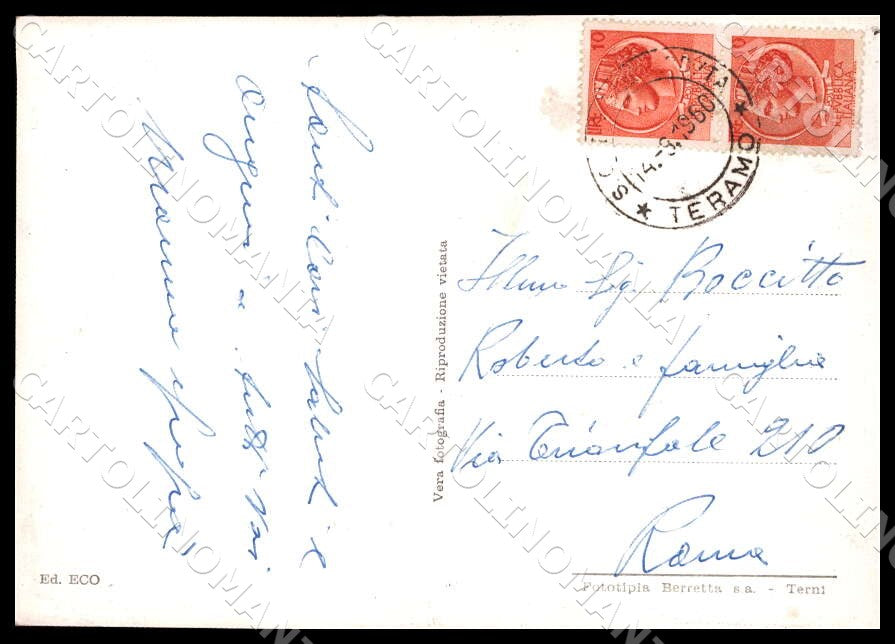 Tanti cari saluti e
auguri a tutti voi
Vera fotografia - Riproduzione vietata
Ed. ECO
LIRE 10
REPUBBLICA
ITALIANA
14.-9.1960
★ TERAMO ★
Illmo Sig. Boccitto
Roberto e famiglia
Via Trionfale 210
Roma
Fototipia Berretta s.a. - Terni
CARTOLINOMANIA